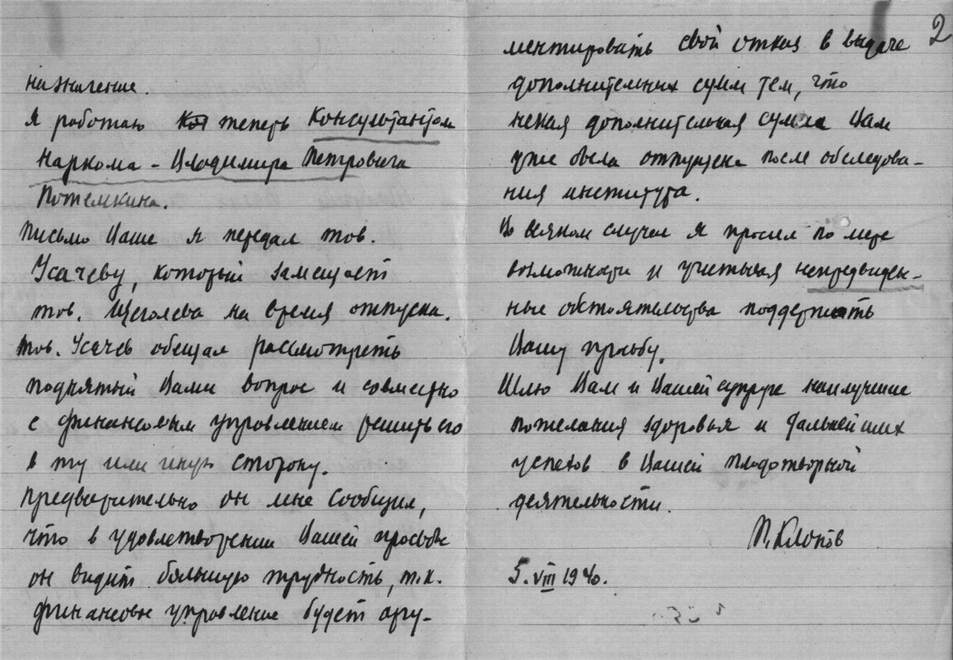 назначение.
Я работаю теперь Консультантом
Наркома - Владимира Петровича
Потемкина.
Письмо Ваше я передал тов.
Усачеву, который замещает
тов. Щеголева на время отпуска.
Тов. Усачев обещал рассмотреть
поднятый Вами вопрос и совместно
с финансовым управлением решить его
в ту или иную сторону.
Предварительно он мне сообщил,
что в удовлетворении Вашей просьбы
он видит большую трудность, т.к.
финансовое управление будет аргу-
2
ментировать свой отказ в выдаче
дополнительных сумм тем, что
некая дополнительная сумма Вам
уже была отпущена после обследова-
ния института.
Во всяком случае я просил по мере
возможности и учитывая непредвиден-
ные обстоятельства поддержать
Вашу просьбу.
Шлю Вам и Вашей супруге наилучшие
пожелания здоровья и дальнейших
успехов в Вашей плодотворной
деятельности.
П. Клопов
5.VIII 1940.